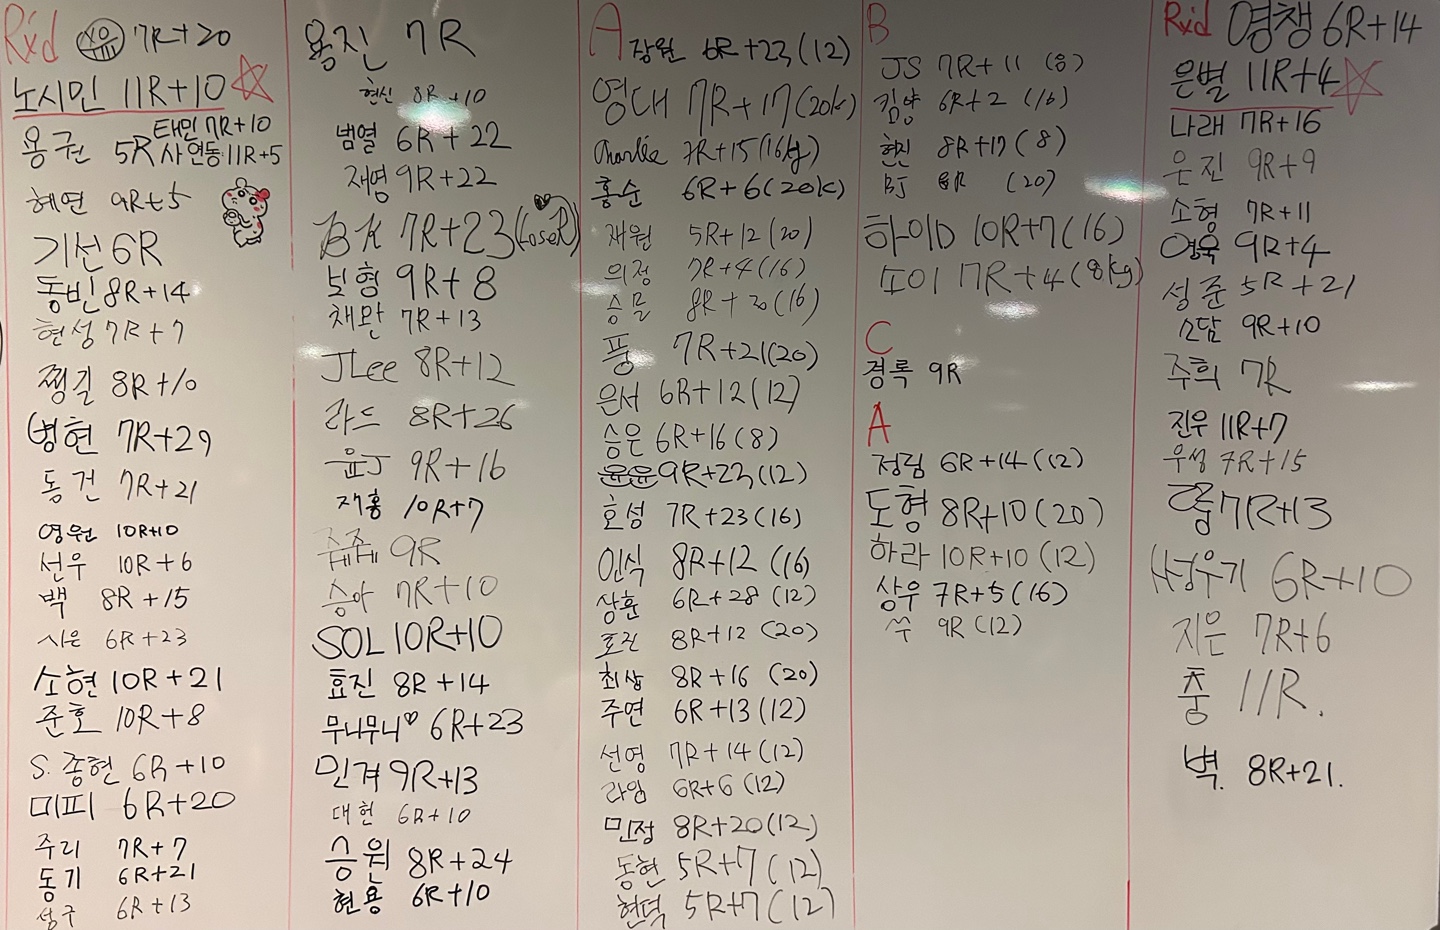 Rx'd 7R+20
노시민 11R+10
태민 7R+10
용권 5R 사연동 11R+5
혜연 9R+5
기선 6R
동빈 8R+14
현성 7R+7
쩡길 8R+10
병현 7R+29
동건 7R+21
영원 10R+10
선우 10R+6
백 8R+15
시은 6R+23
소현 10R+21
준호 10R+8
S. 종현 6R+10
미피 6R+20
주리 7R+7
동기 6R+21
성구 6R+13
용진 7R
현신 8R+10
범열 6R+22
재영 9R+22
BK 7R+23 (LoseR)
보형 9R+8
채완 7R+13
JLee 8R+12
라드 8R+26
윤J 9R+16
재홍 10R+7
쥬쥬 9R
승아 7R+10
SOL 10R+10
효진 8R+14
무니무니♡ 6R+23
민겨 9R+13
대헌 6R+10
승원 8R+24
현용 6R+10
A 장원 6R+23 (12)
영대 7R+17 (20k)
Charlie 7R+15 (16kg)
홍순 6R+6 (20k)
재원 5R+12 (20)
의정 7R+4 (16)
승물 8R+20 (16)
풍 7R+21 (20)
은서 6R+12 (12)
승은 6R+16 (8)
윤윤 9R+23 (12)
호성 7R+23 (16)
인식 8R+12 (16)
상훈 6R+28 (12)
효진 8R+12 (20)
최상 8R+16 (20)
주연 6R+13 (12)
선영 7R+14 (12)
라임 6R+6 (12)
민정 8R+20 (12)
동현 5R+7 (12)
현덕 5R+7 (12)
B
JS 7R+11 (8)
김양 6R+2 (16)
현진 8R+17 (8)
BJ 8R (20)
하이D 10R+7 (16)
쏘이 7R+4 (8kg)
C
경록 9R
A
정림 6R+14 (12)
도형 8R+10 (20)
하라 10R+10 (12)
상우 7R+5 (16)
쑤 9R (12)
Rx'd 영쟁 6R+14
은별 11R+4
나래 7R+16
은진 9R+9
소형 7R+11
영욱 9R+4
성준 5R+21
소담 9R+10
주희 7R
진우 11R+7
우성 7R+15
7R+13
서성우기 6R+10
지은 7R+6
충 11R.
벽. 8R+21.